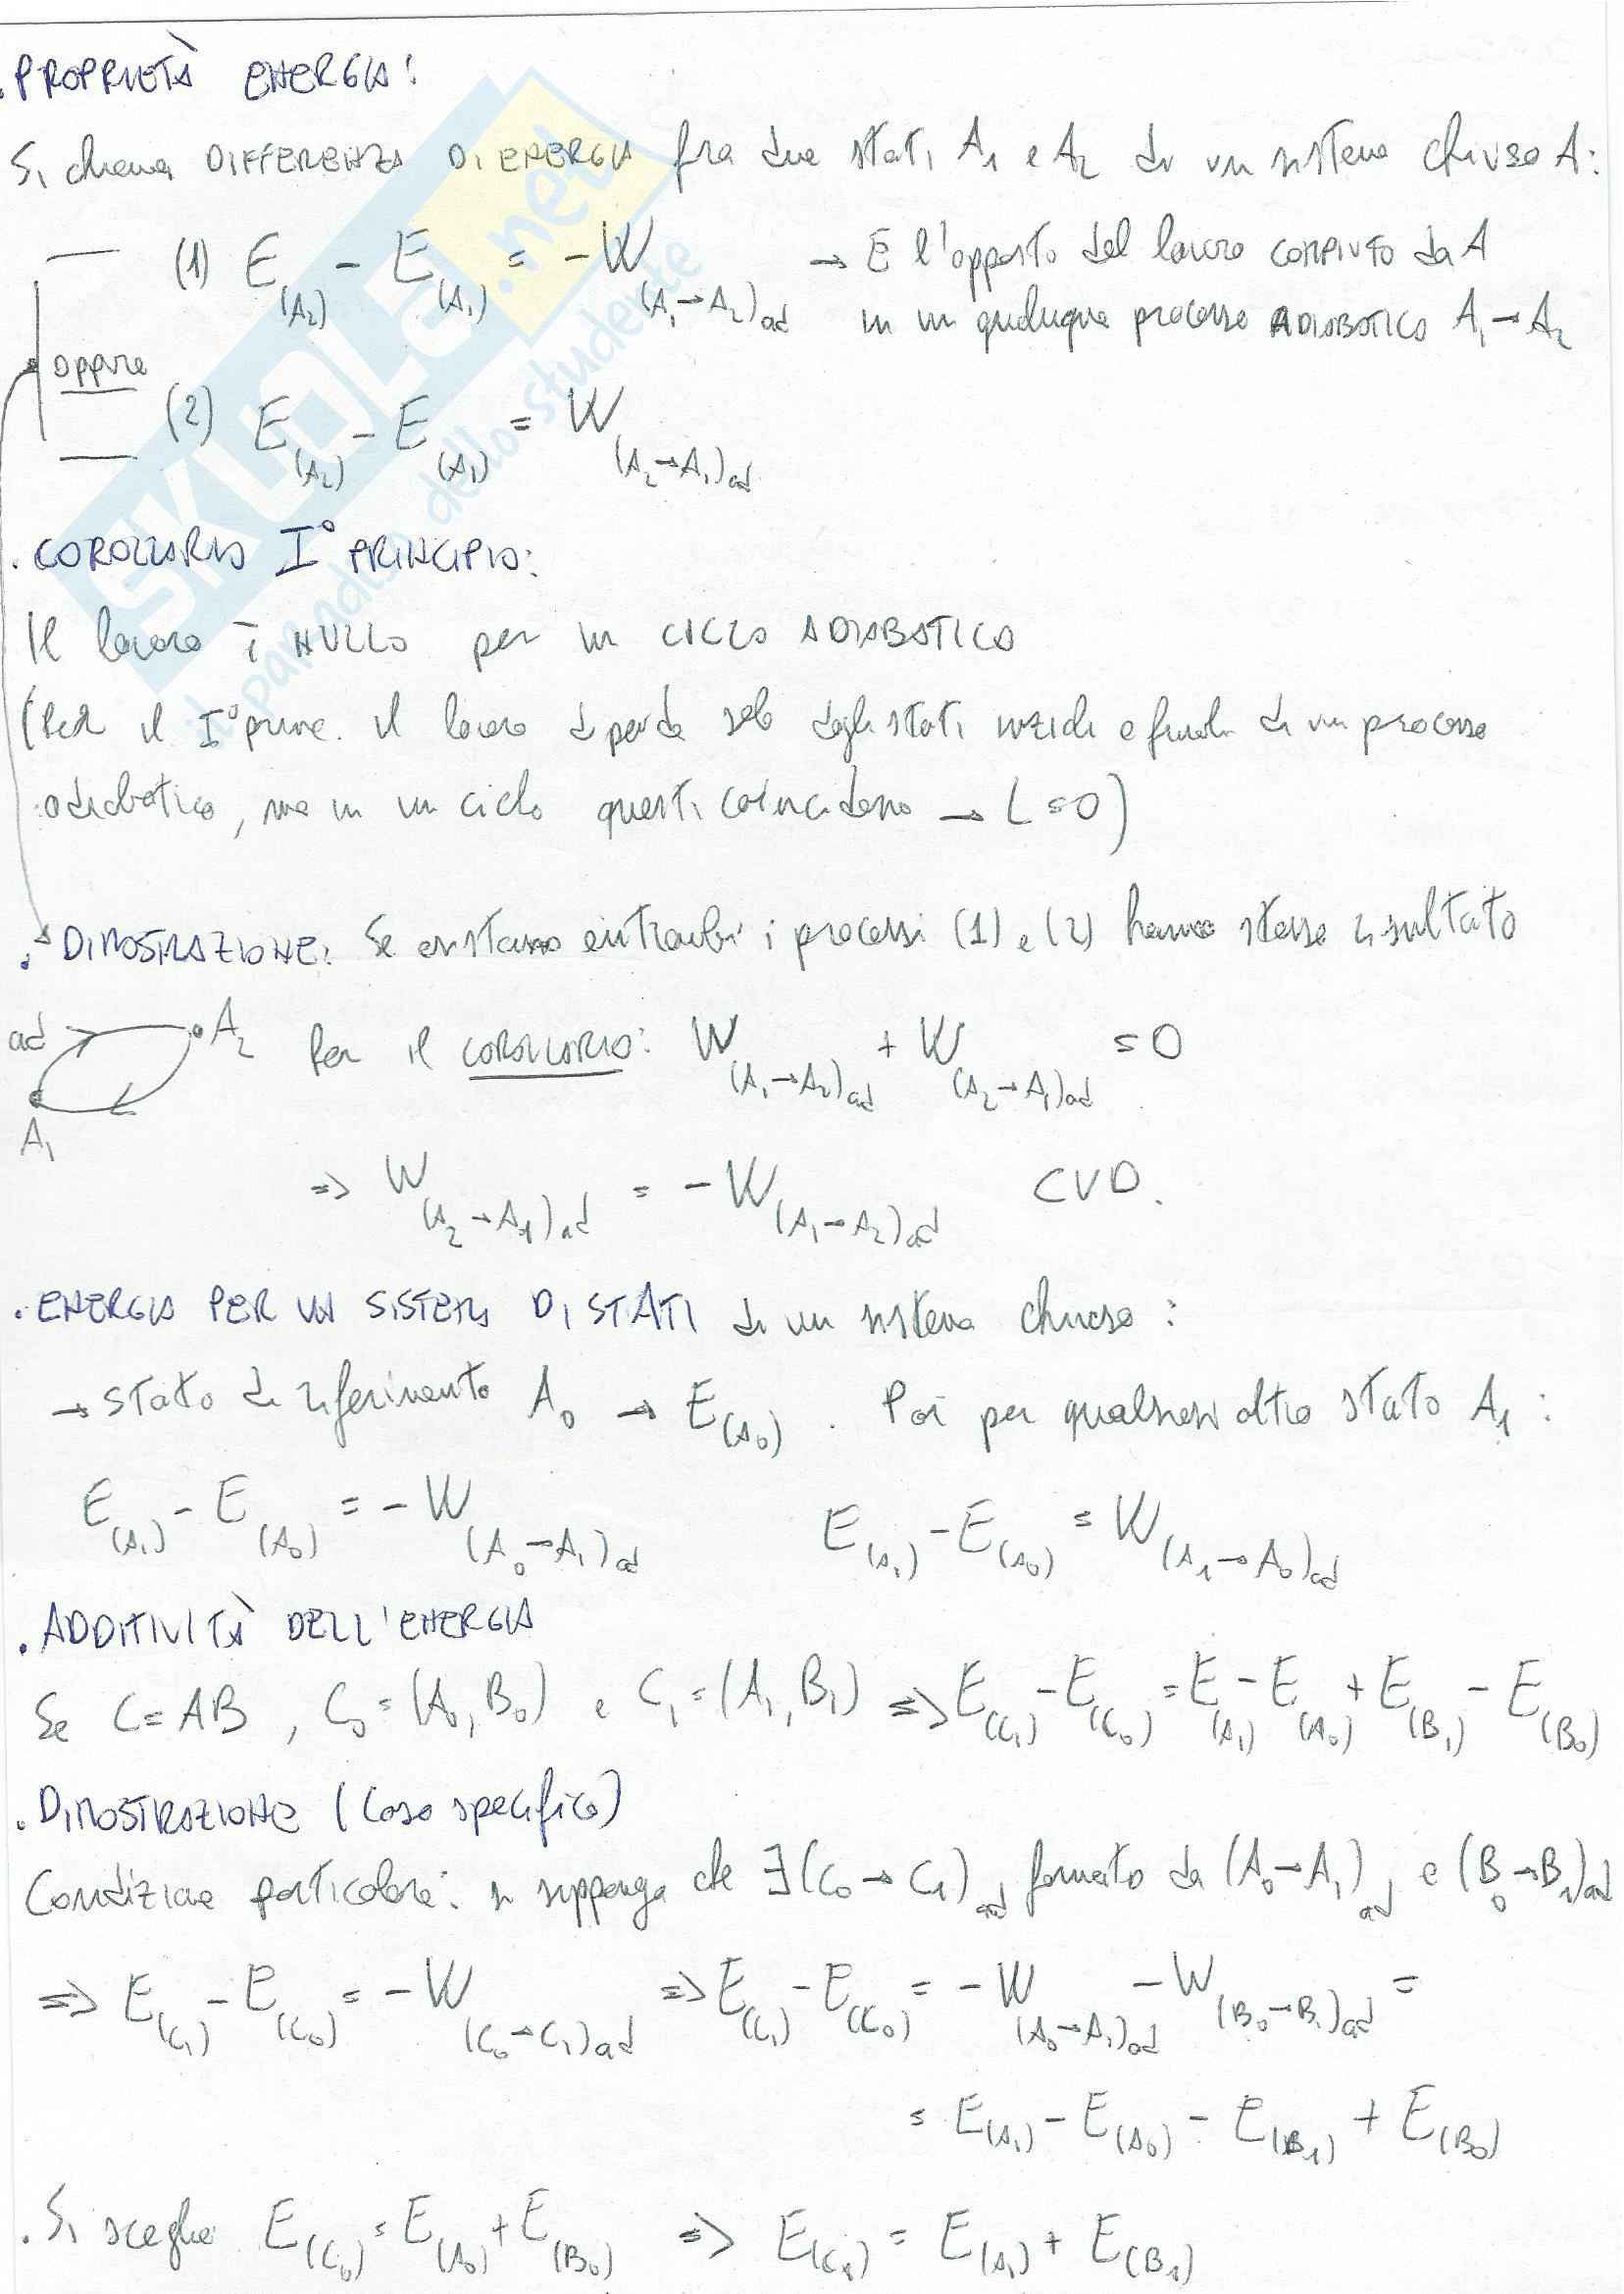 . PROPRIETÀ ENERGIA:
Si chiama DIFFERENZA DI ENERGIA fra due stati A₁ e A₂ di un sistema chiuso A:
(1) E(A₂) - E(A₁) = -W(A₁→A₂)ad → È l'opposto del lavoro COMPIUTO da A
in un qualunque processo ADIABATICO A₁→A₂
oppure
(2) E(A₂) - E(A₁) = W(A₂→A₁)ad
. COROLLARIO I° PRINCIPIO:
Il lavoro è NULLO per un CICLO ADIABATICO
(Per il I° princ. il lavoro dipende solo dagli stati iniziali e finali di un processo
adiabatico, ma in un ciclo questi coincidono → L=0)
. DIMOSTRAZIONE: Se esistono entrambi i processi (1) e (2) hanno stesso risultato
ad A₂ A₁ Per il COROLLARIO: W(A₁→A₂)ad + W(A₂→A₁)ad = 0
=> W(A₂→A₁)ad = -W(A₁→A₂)ad CVD.
. ENERGIA PER UN SISTEMA DI STATI di un sistema chiuso:
→ stato di riferimento A₀ → E(A₀). Poi per qualsiasi altro stato A₁:
E(A₁) - E(A₀) = -W(A₀→A₁)ad E(A₁) - E(A₀) = W(A₁→A₀)ad
. ADDITIVITÀ DELL'ENERGIA
Se C=AB, C₀=(A₀,B₀) e C₁=(A₁,B₁) => E(C₁) - E(C₀) = E(A₁) - E(A₀) + E(B₁) - E(B₀)
. DIMOSTRAZIONE (Caso specifico)
Condizione particolare: si supponga che ∃(C₀→C₁)ad formato da (A₀→A₁)ad e (B₀→B₁)ad
=> E(C₁) - E(C₀) = -W(C₀→C₁)ad => E(C₁) - E(C₀) = -W(A₀→A₁)ad - W(B₀→B₁)ad =
= E(A₁) - E(A₀) - E(B₁) + E(B₀)
. Si sceglie E(C₀) = E(A₀) + E(B₀) => E(C₁) = E(A₁) + E(B₁)
SKUOLA.net
il paradiso dello studente